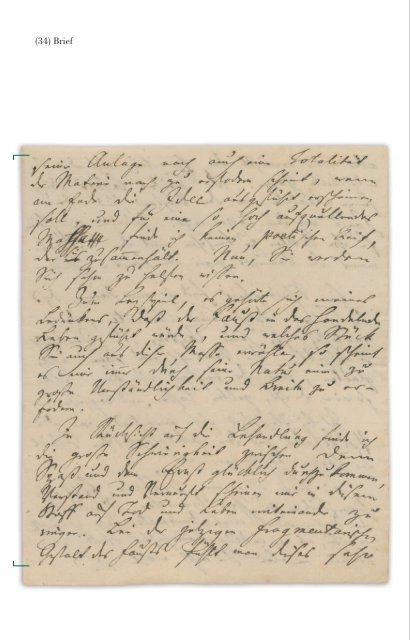 (34) Brief
seiner Anlage nach auch eine Totalität
der Materie nach zu erfodern scheint, wenn
am Ende die Idee ausgeführt erscheinen
soll, und für eine so hoch aufquellende
Masse finde ich keinen poetischen Reif,
der sie zusammenhält. Nun, Sie werden
Sich schon zu helfen wissen.
Zum Beyspiel, es gehörte sich meines
Bedünkens, daß der Faust in das handelnde
Leben geführt würde, und welches Stück
Sie auch aus dieser Masse erwählen, so scheint
es mir immer durch seine Natur eine zu
große Umständlichkeit und Breite zu er-
fodern.
In Rücksicht auf die Behandlung finde ich
die große Schwierigkeit zwischen dem
Spaß und dem Ernst glücklich durchzukommen,
Verstand und Vernunft scheinen mir in diesem
Stoff auf Tod und Leben miteinander zu
ringen. Bei der jetzigen fragmentarischen
Gestalt des Fausts fühlt man dieses sehr